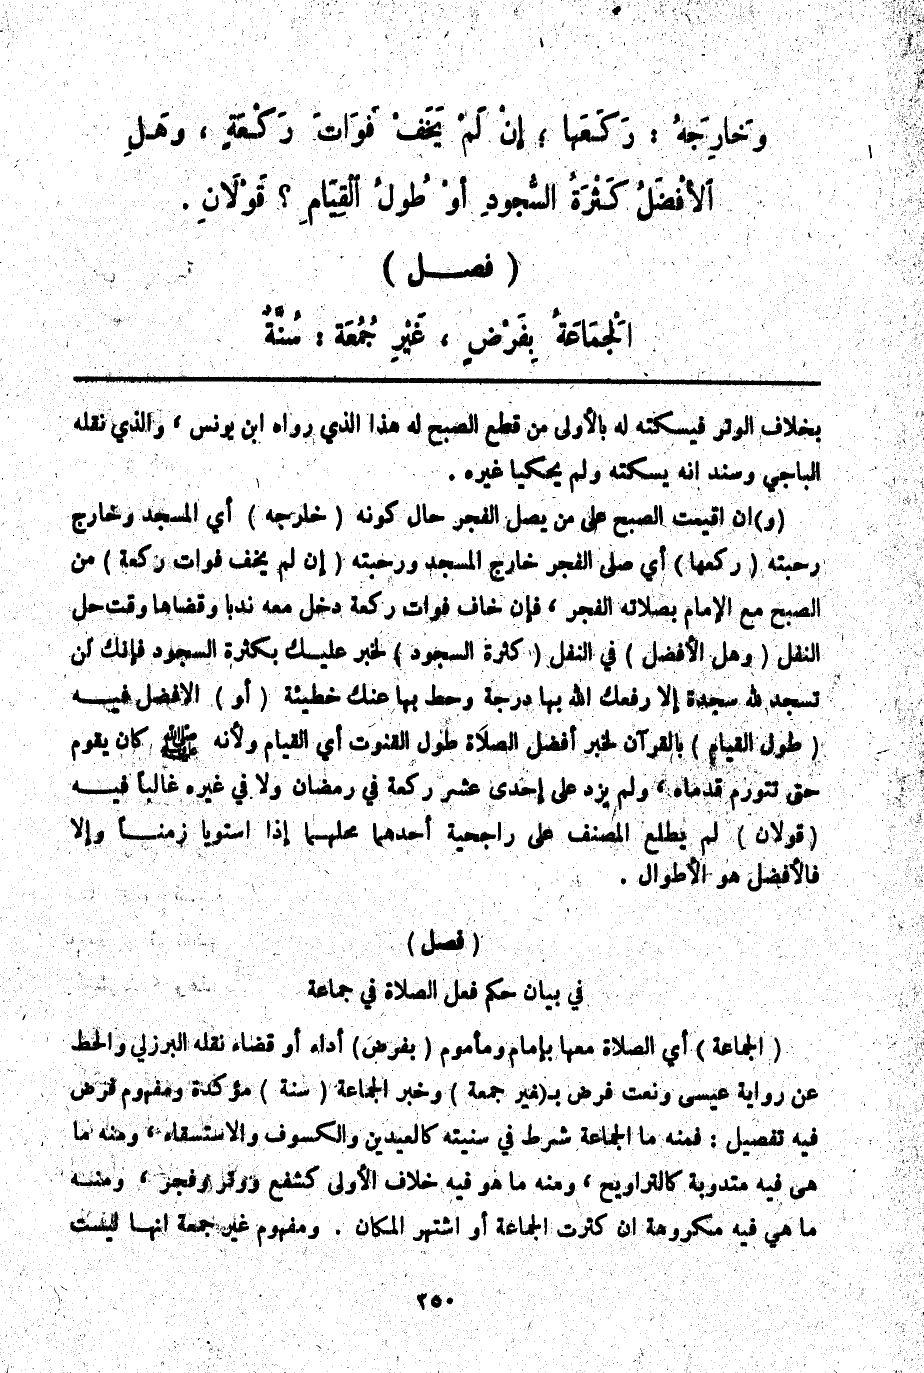 وَخارِجَهُ : رَكَعَها ؛ إِنْ لَمْ يَخَفْ فَوَاتَ رَكْعَةٍ ، وَهَلِ
ٱلأفْضَلُ كَثْرَةُ السُّجودِ أوْ طُولُ ٱلْقِيَامِ ؟ قَوْلَانِ .
( فصــل )
الْجَمَاعَةُ بِفَرْضٍ ، غَيْرِ جُمُعَة : سُنَّةٌ
بخلاف الوتر فيسكته له بالأولى من قطع الصبح له هذا الذي رواه ابن يونس ، والذي نقله
الباجي وسند انه يسكته ولم يحكيا غيره .
(و)ان اقيمت الصبح على من يصل الفجر حال كونه ( خارجه ) أي المسجد وخارج
رحبته ( ركعها ) أي صلى الفجر خارج المسجد ورحبته ( إن لم يخف فوات ركعة ) من
الصبح مع الإمام بصلاته الفجر ، فإن خاف فوات ركعة دخل معه ندبا وقضاها وقت حل
النفل ( وهل الأفضل ) في النفل ( كثرة السجود ) لخبر عليــك بكثرة السجود فإنك لن
تسجد لله سجدة إلا رفعك الله بها درجة وحط بها عنك خطيئة ( أو ) الافضل فيــه
( طول القيام ) بالقرآن لخبر أفضل الصلاة طول القنوت أي القيام ولأنه ﷺ كان يقوم
حتى تتورم قدماه ، ولم يزد على إحدى عشر ركعة في رمضان ولا في غيره غالباً فيــه
( قولان ) لم يطلع المصنف على راجحية أحدهما محلهــا إذا استويا زمنــاً وإلا
فالأفضل هو الأطوال .
( فصل )
في بيان حكم فعل الصلاة في جماعة
( الجماعة ) أي الصلاة معها بإمام ومأموم ( بفرض ) أداء أو قضاء نقله البرزلي والحط
عن رواية عيسى ونعت فرض بـ(غير جمعة ) وخبر الجماعة ( سنة ) مؤكدة ومفهوم فرض
فيه تفصيل : فمنه ما الجماعة شرط في سنيته كالعيدين والكسوف والاستسقاء ، ومنه ما
هى فيه مندوبة كالتراويح ، ومنه ما هو فيه خلاف الأولى كشفع ووتر وفجر ، ومنــه
ما هي فيه مكروهة ان كثرت الجماعة أو اشتهر المكان . ومفهوم غير جمعة انهــا ليست
٢٥٠